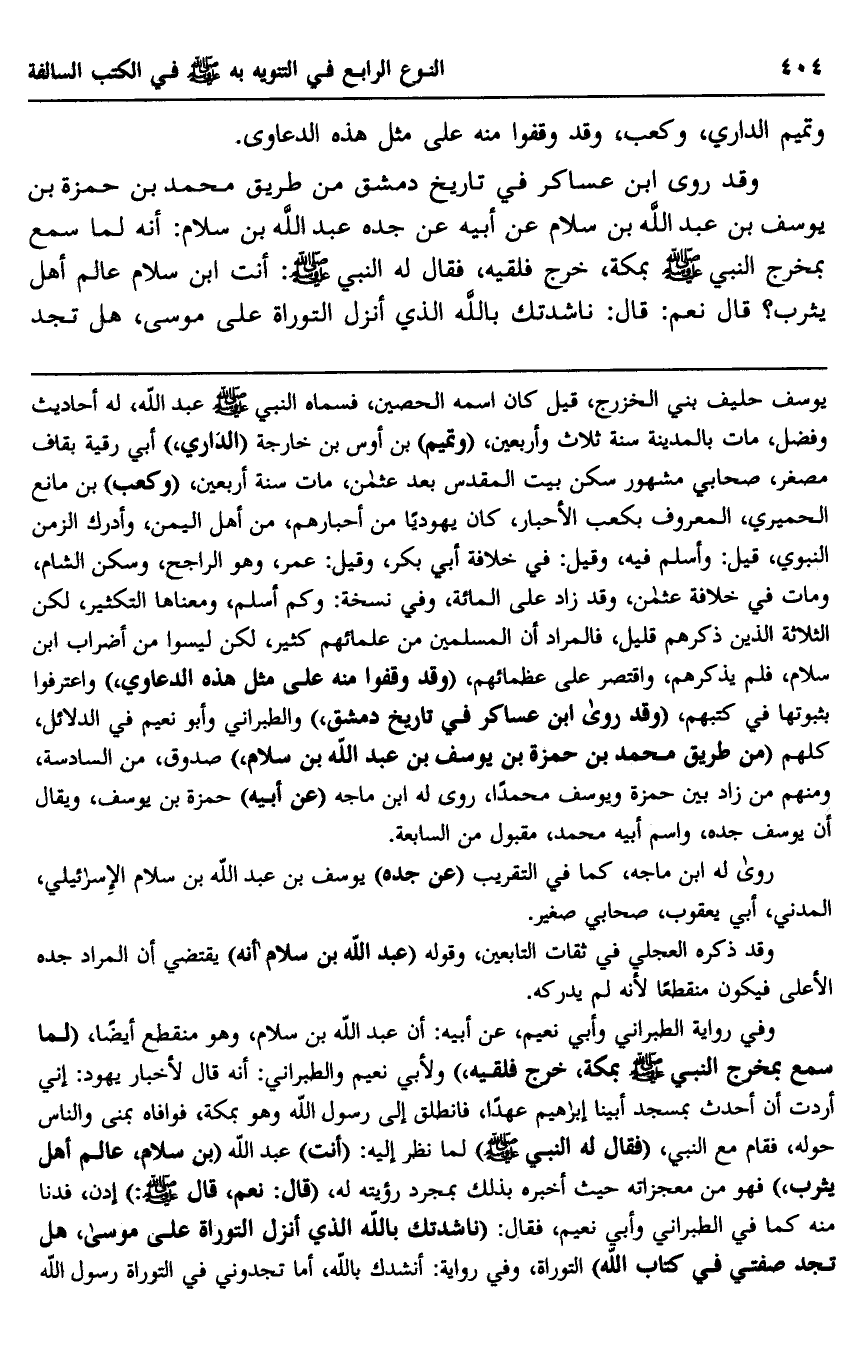 ٤٠٤ النوع الرابع في التنويه به ﷺ في الكتب السالفة
وتميم الداري، وكعب، وقد وقفوا منه على مثل هذه الدعاوى.
وقد روى ابن عساكر في تاريخ دمشق من طريق محمد بن حمزة بن
يوسف بن عبد اللَّه بن سلام عن أبيه عن جده عبد اللَّه بن سلام: أنه لما سمع
بمخرج النبي ﷺ بمكة، خرج فلقيه، فقال له النبي ﷺ: أنت ابن سلام عالم أهل
يثرب؟ قال نعم: قال: ناشدتك باللَّه الذي أنزل التوراة على موسى، هل تجد
يوسف حليف بني الخزرج، قيل كان اسمه الحصين، فسماه النبي ﷺ عبد اللّه، له أحاديث
وفضل، مات بالمدينة سنة ثلاث وأربعين، (وتميم) بن أوس بن خارجة (الداري،) أبي رقية بقاف
مصغر، صحابي مشهور سكن بيت المقدس بعد عثمٰن، مات سنة أربعين، (وكعب) بن مانع
الحميري، المعروف بكعب الأحبار، كان يهوديًا من أحبارهم، من أهل اليمن، وأدرك الزمن
النبوي، قيل: وأسلم فيه، وقيل: في خلافة أبي بكر، وقيل: عمر، وهو الراجح، وسكن الشام،
ومات في خلافة عثمٰن، وقد زاد على المائة، وفي نسخة: وكم أسلم، ومعناها التكثير، لكن
الثلاثة الذين ذكرهم قليل، فالمراد أن المسلمين من علمائهم كثير، لكن ليسوا من أضراب ابن
سلام، فلم يذكرهم، واقتصر على عظمائهم، (وقد وقفوا منه على مثل هذه الدعاوي،) واعترفوا
بثبوتها في كتبهم، (وقد روىٰ ابن عساكر في تاريخ دمشق،) والطبراني وأبو نعيم في الدلائل،
كلهم (من طريق محمد بن حمزة بن يوسف بن عبد اللّه بن سلام،) صدوق، من السادسة،
ومنهم من زاد بين حمزة ويوسف محمدًا، روى له ابن ماجه (عن أبيه) حمزة بن يوسف، ويقال
أن يوسف جده، واسم أبيه محمد، مقبول من السابعة.
روىٰ له ابن ماجه، كما في التقريب (عن جده) يوسف بن عبد اللّه بن سلام الإسرٰئيلي،
المدني، أبي يعقوب، صحابي صغير.
وقد ذكره العجلي في ثقات التابعين، وقوله (عبد اللّه بن سلام أنه) يقتضي أن المراد جده
الأعلى فيكون منقطعًا لأنه لم يدركه.
وفي رواية الطبراني وأبي نعيم، عن أبيه: أن عبد اللّه بن سلام، وهو منقطع أيضًا، (لما
سمع بمخرج النبي ﷺ بمكة، خرج فلقيه،) ولأبي نعيم والطبراني: أنه قال لأخبار يهود: إني
أردت أن أحدث بمسجد أبينا إبرٰهيم عهدًا، فانطلق إلى رسول اللّه وهو بمكة، فوافاه بمنى والناس
حوله، فقام مع النبي، (فقال له النبي ﷺ) لما نظر إليه: (أنت) عبد اللّه (بن سلام، عالم أهل
يثرب،) فهو من معجزاته حيث أخبره بذلك بمجرد رؤيته له، (قال: نعم، قال ﷺ:) إدن، فدنا
منه كما في الطبراني وأبي نعيم، فقال: (ناشدتك باللّه الذي أنزل التوراة على موسىٰ، هل
تجد صفتي في كتاب اللّه) التوراة، وفي رواية: أنشدك باللّه، أما تجدوني في التوراة رسول اللّه